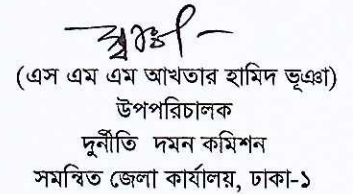 (এস এম এম আখতার হামিদ ভূঞা)
উপপরিচালক
দুর্নীতি দমন কমিশন
সমন্বিত জেলা কার্যালয়, ঢাকা-১